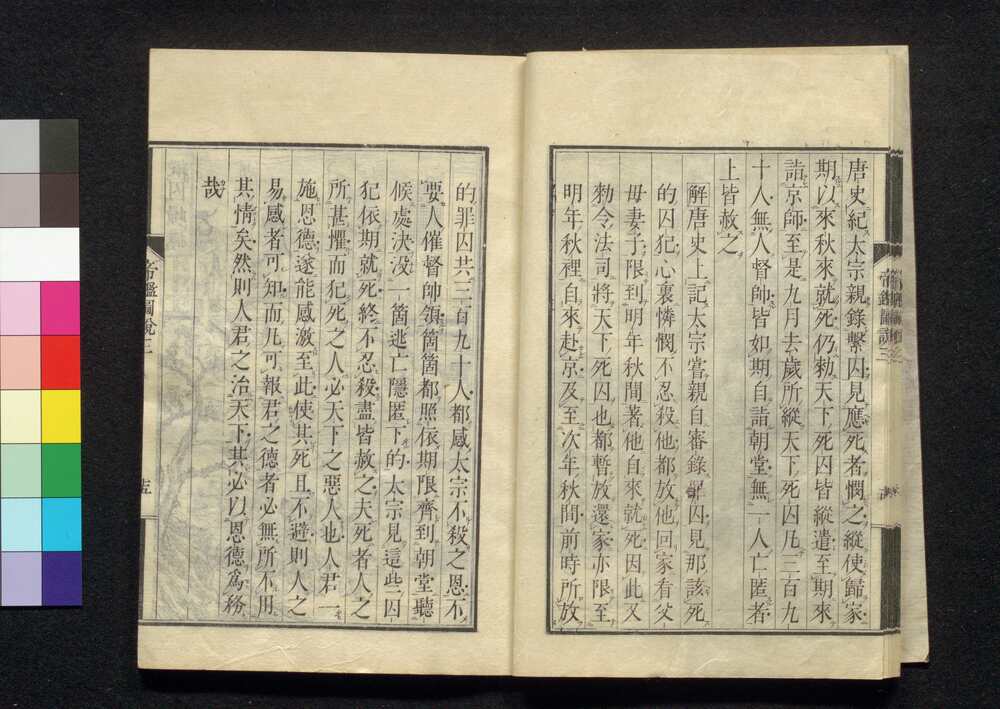 唐史紀太宗親錄繫囚見應死者憫之縱使歸家
期以來秋來就死仍勅天下死囚皆縱遣至期來
詣京師至是九月去歲所縱天下死囚凡三百九
十人無人督帥皆如期自詣朝堂無一人亡匿者
上皆赦之
解唐史上記太宗嘗親自審錄罪囚見那該死
的囚犯心裏憐憫不忍殺他都放他回家看父
母妻子限到明年秋間著他自來就死因此又
勅令法司將天下死囚也都暫放還家亦限至
明年秋裡自來赴京及至次年秋間前時所放
的罪囚共三百九十人都感太宗不殺之恩不
要人催督帥領箇箇都照依期限齊到朝堂聽
候處決没一箇逃亡隱匿下的太宗見這些囚
犯依期就死終不忍殺盡皆赦之夫死者人之
所甚懼而犯死之人必天下之惡人也人君一
施恩德遂能感激至此使其死且不避則人之
易感者可知而凡可報君之德者必無所不用
其情矣然則人君之治天下其必以恩德為務
哉
帝鑑圖說三